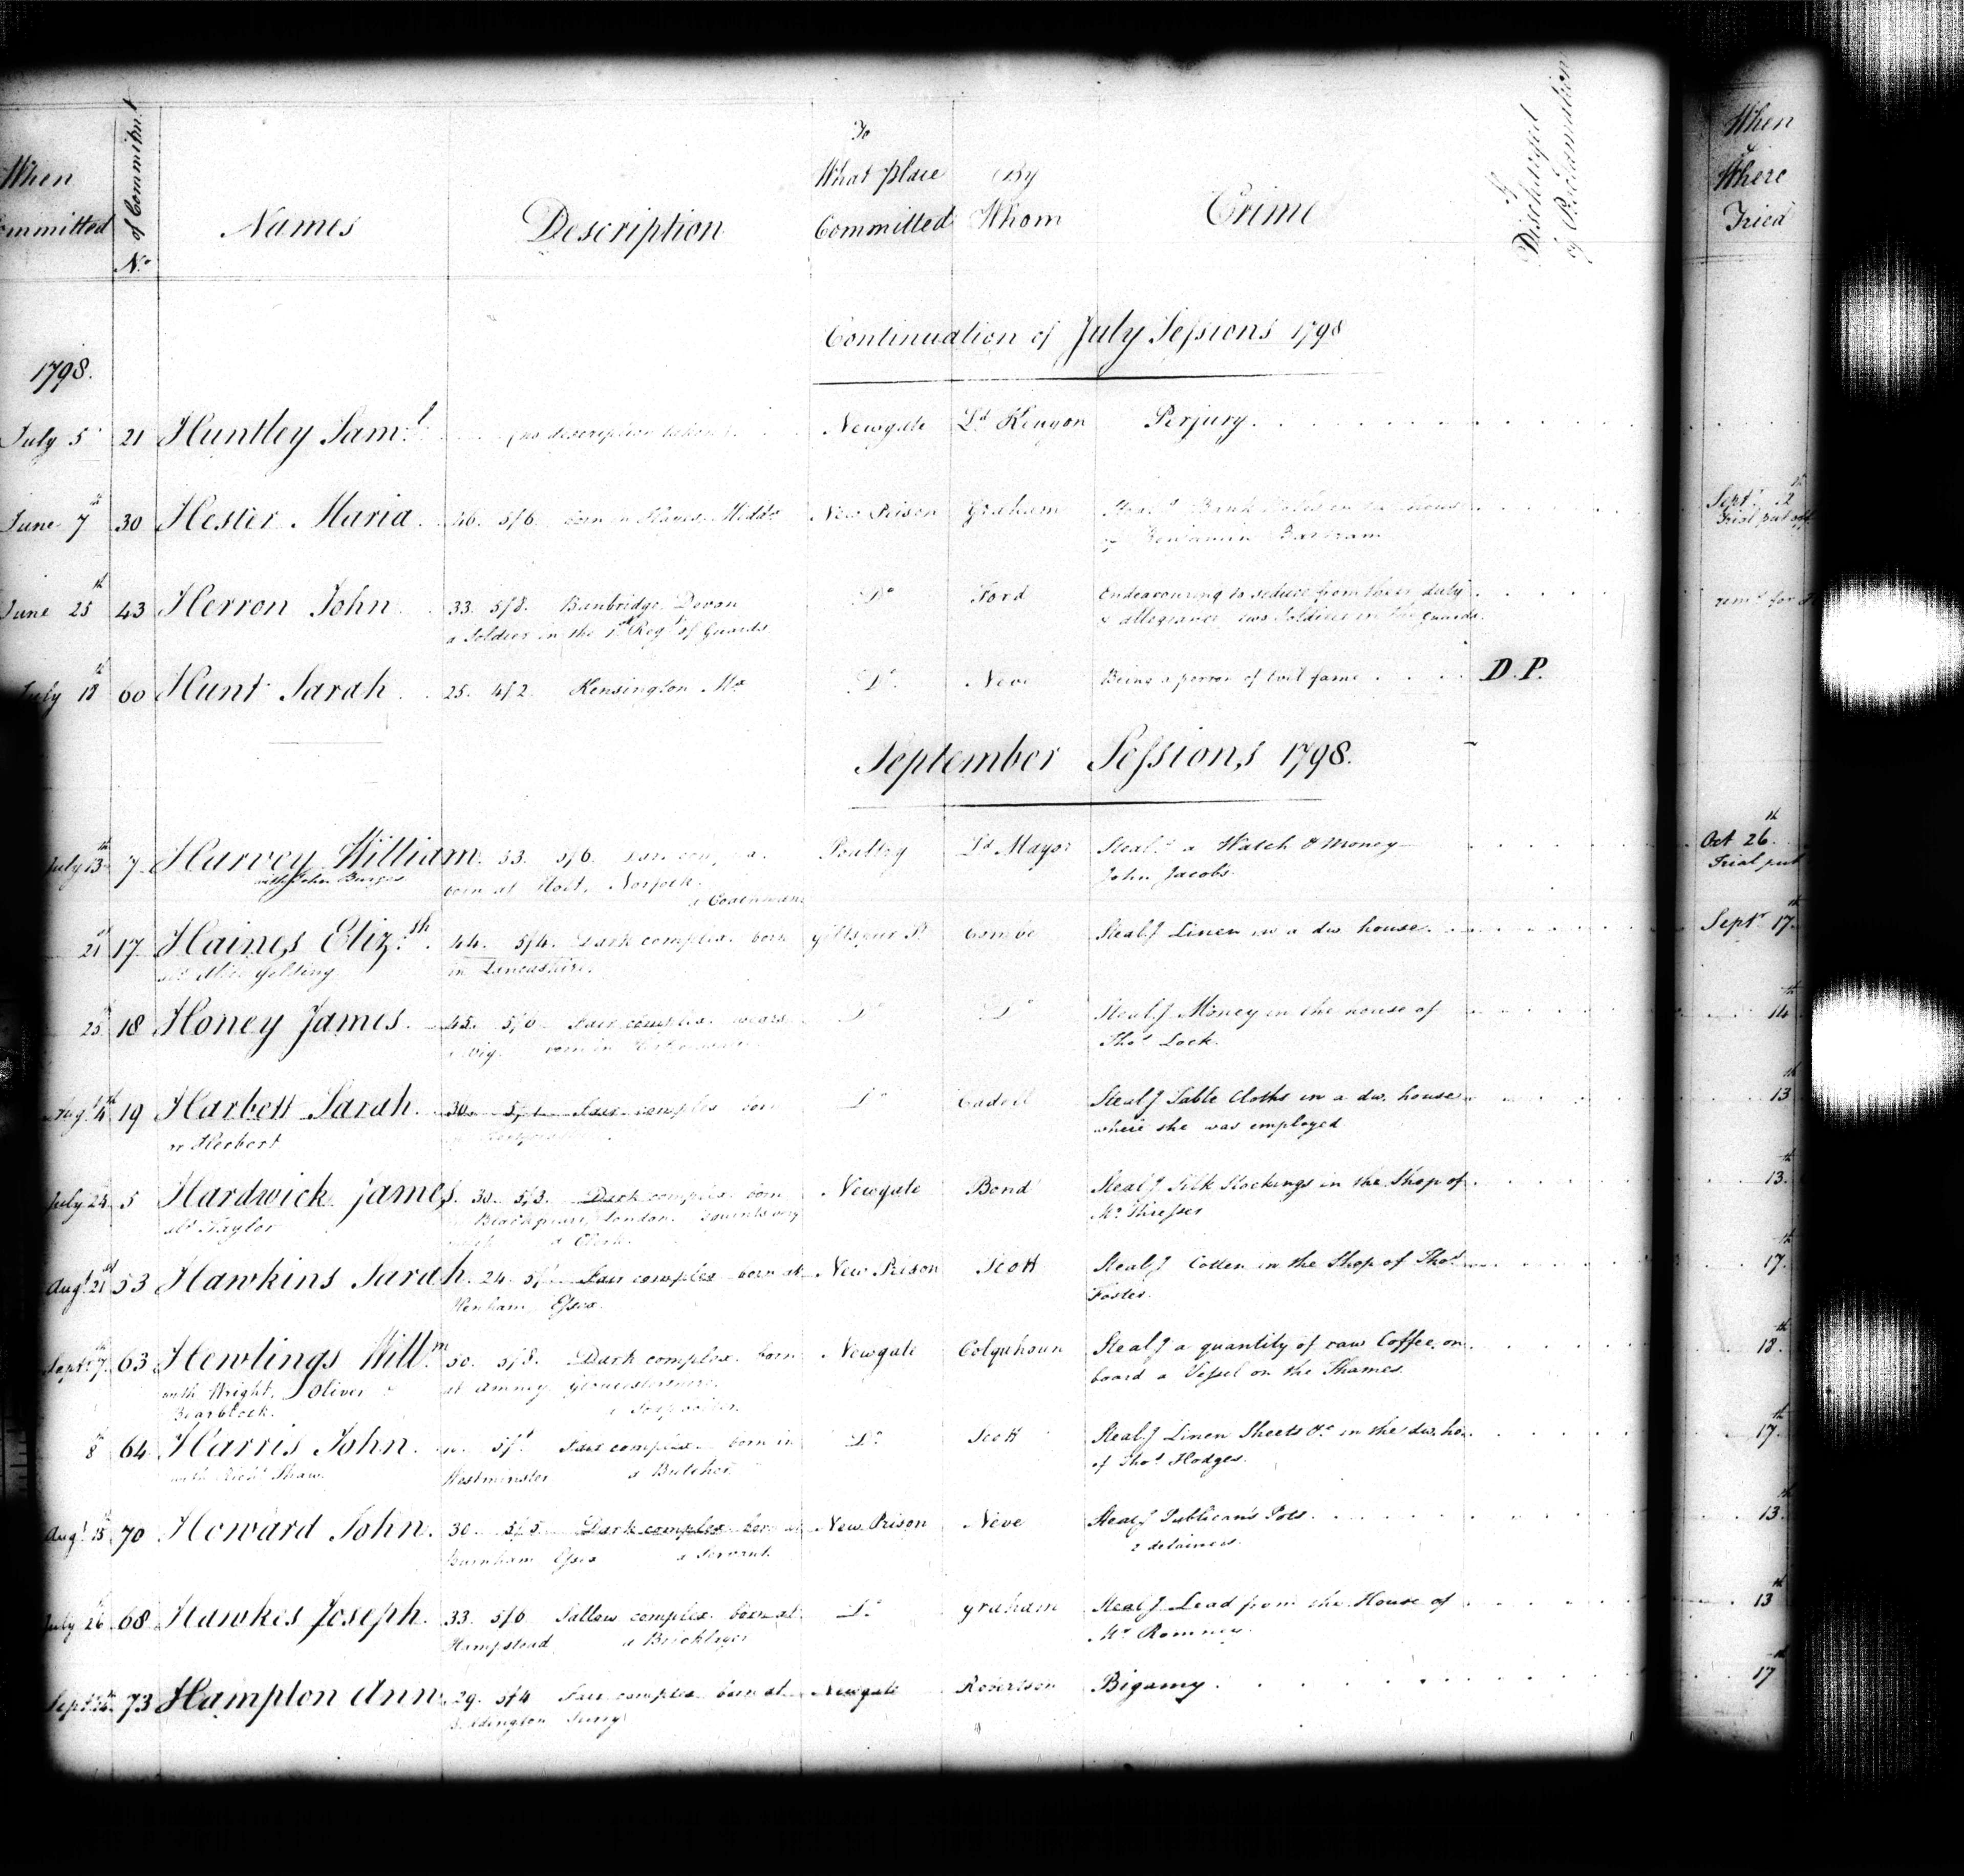 When Committed
No. of Commitmt
Names
Description
To What Place Committed
By Whom
Crime
Discharged by Proclamation
When & Where Tried
Continuation of July Sessions 1798
1798.
July 5 21 Huntley Saml. (no description taken) Newgate Ld. Kenyon Perjury
June 7 30 Hester Maria 46. 5/6 born in Hayes Middx New Prison Graham Bank Notes in house Septr. 12
of Benjamin Bartram Trial put off
June 25th 43 Herron John 33. 5/8. Banbridge Devon Do. Ford Endeavouring to seduce from their duty
a Soldier in the 1st Regt. of Guards & allegiance two Soldiers in the guards
July 18 60 Hunt Sarah 25. 4/2. Kensington Mx Do. Neve Being a person of evil fame D.P.
September Sessions 1798.
July 13th 7 Harvey William 33. 5/6. Poultry Ld. Mayor Stealg. a Watch & Money Oct 26th
with John Burges born at Holt, Norfolk. John Jacobs. Trial put
21 17 Haines Elizth. 44. 5/4. Dark complex. born Giltspur St. Combe Stealg Linen in a dw. house. Septr 17th
in Lancashire.
25 18 Honey James. 45. 5/6 Fair complex. wears Do Do Stealg Money in the house of 14th
a wig. born in Thos. Lock.
Augt. 4th 19 Harbett Sarah 30. Fair complex born Do Stealg Table Cloths in a dw. house 13th
or Herbert where she was employed
July 24 5 Hardwick James 5/3. Dark complex. born Newgate Bond Stealg Silk Stockings in the Shop of 13th
als Naylor Blackfriars, London. squints very Mr.
much a Clerk.
Augt. 21st 53 Hawkins Sarah 24 Fair complex born at New Prison Scott Stealg Cotten in the Shop of Thos. 17th
Henham, Essex. Foster.
Septr. 7th 63 Hewlings Willm. 50. 5/8. Dark complex. born Newgate Colquhoun Stealg a quantity of raw Coffee on 18th
with Wright, Oliver & at Gloucestershire. board a Vessel on the Thames.
Bearblock.
8 64 Harris John Fair complex. born in Do. Scott Stealg Linen Sheets &c. in the dw. ho. 17th
with Richd. Shaw. Westminster a Butcher of Thos. Hodges.
Augt. 15 70 Howard John. 30. 5/5. Dark complex born at New Prison Neve Stealg Publican's Pots. 13th
Burnham Essex a Servant. 2 detainers.
July 26 68 Hawkes Joseph. 33. 5/6 Sallow complex. born at Do. Graham Stealg Lead from the House of 13th
Hampstead a Bricklayer Mr. Romney.
Septr. 73 Hampton Ann 29. 5/4 Fair complex born at Newgate Robertson Bigamy 17th
Surry